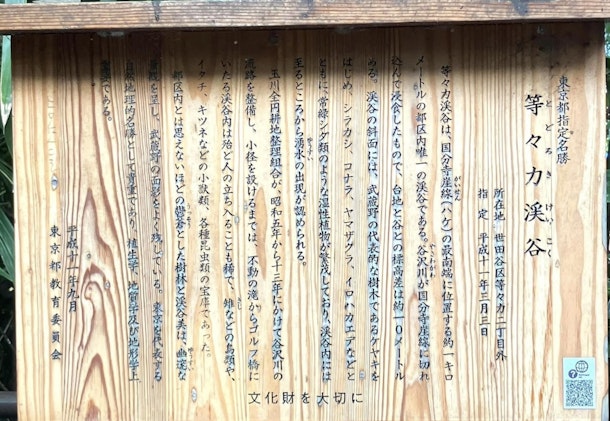 東京都指定名勝
等々力渓谷
とどろきけいこく
所在地 世田谷区等々力二丁目外
指定 平成十一年三月三日
等々力渓谷は、国分寺崖線（ハケ）の最南端に位置する約一キロ
がいせん
メートルの都区内唯一の渓谷である。谷沢川が国分寺崖線に切れ
やざわがわ
込んで浸食したもので、台地と谷との標高差は約一〇メートル
ある。渓谷の斜面には、武蔵野の代表的な樹木であるケヤキを
はじめ、シラカシ、コナラ、ヤマザクラ、イロハカエデなどと
ともに、常緑シダ類のような湿性植物が繁茂しており、渓谷内には
至るところから湧水の出現が認められる。
ゆうすい
玉川全円耕地整理組合が、昭和五年から十三年にかけて谷沢川の
流路を整備し、小径を設けるまでは、不動の滝からゴルフ橋に
いたる渓谷内は殆ど人の立ち入ることも稀で、雉などの鳥類や、
イタチ、キツネなどの小獣類、各種昆虫類の宝庫であった。
都区内とは思えないほどの鬱蒼とした樹林と渓谷美は、幽邃な
景観を呈し、武蔵野の面影をよく残している。東京を代表する
自然地理的名勝として貴重であり、植生学、地質学及び地形学上
重要である。
平成十一年九月
東京都教育委員会
文化財を大切に